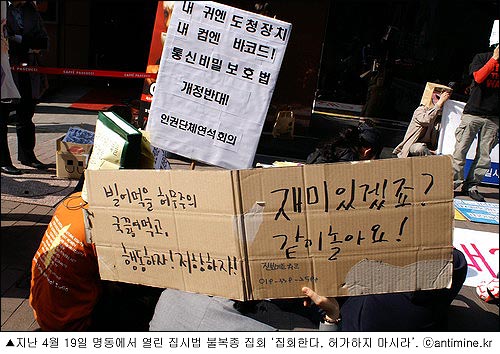 CAFFÉ PASCUCCI
내 귀엔 도청장치
내 컴엔 바코드!
통신비밀 보호법
개정반대!
인권단체연석회의
빌어먹을 허무주의
국끓여먹고,
행동하자! 저항하자!
재미있겠죠?
같이놀아요!
▲지난 4월 19일 명동에서 열린 집시법 불복종 집회 '집회한다, 허가하지 마시라'. ⓒantimine.kr